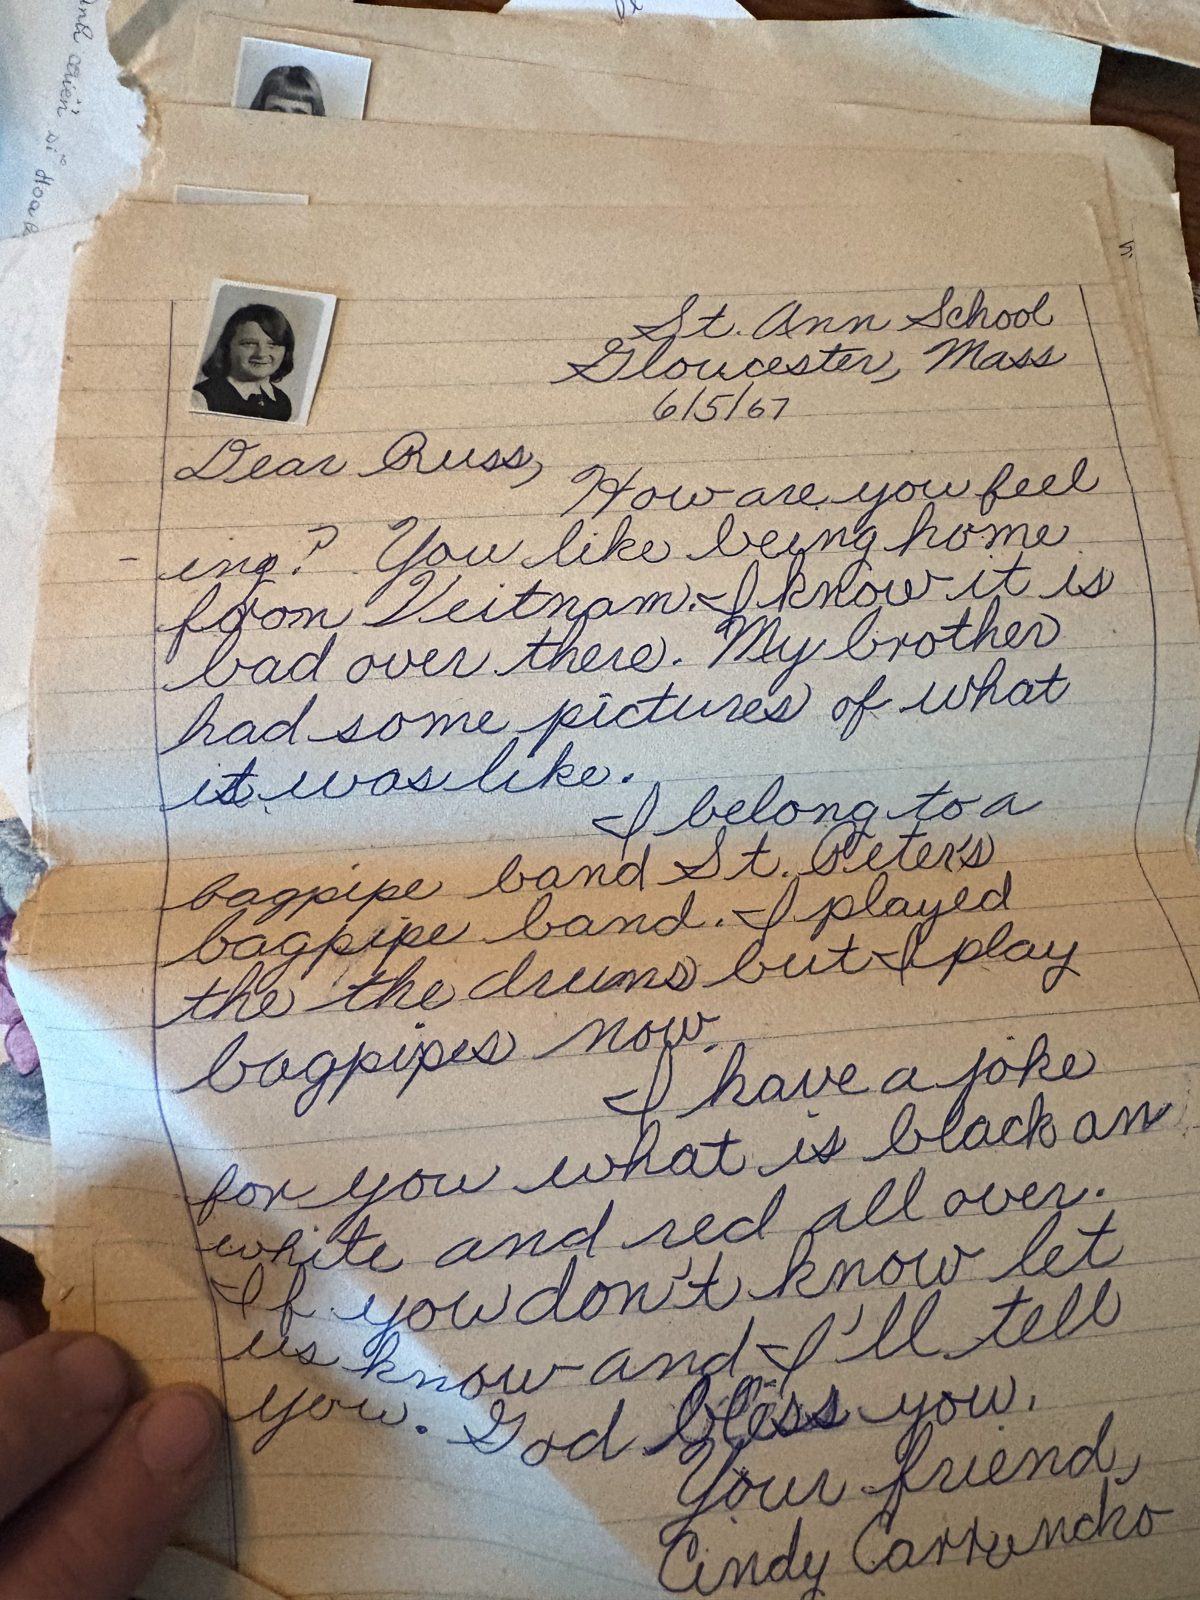 St. Ann School
Gloucester, Mass
6/5/67
Dear Russ,
How are you feel
ing? You like being home
from Veitnam. I know it is
bad over there. My brother
had some pictures of what
it was like.
I belong to a
bagpipe band St. Peter's
bagpipe band. I played
the the drums but I play
bagpipes now.
I have a joke
for you what is black an
white and red all over.
If you don't know let
us know and I'll tell
you. God bless you.
Your friend,
Cindy